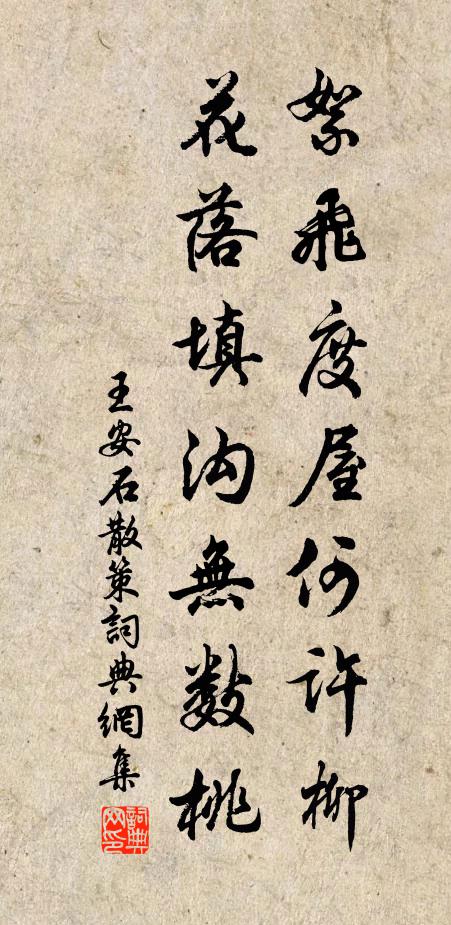 絮飛度屋何許柳
花落填沟無數桃
王安石散策詞典網集
詞典网印